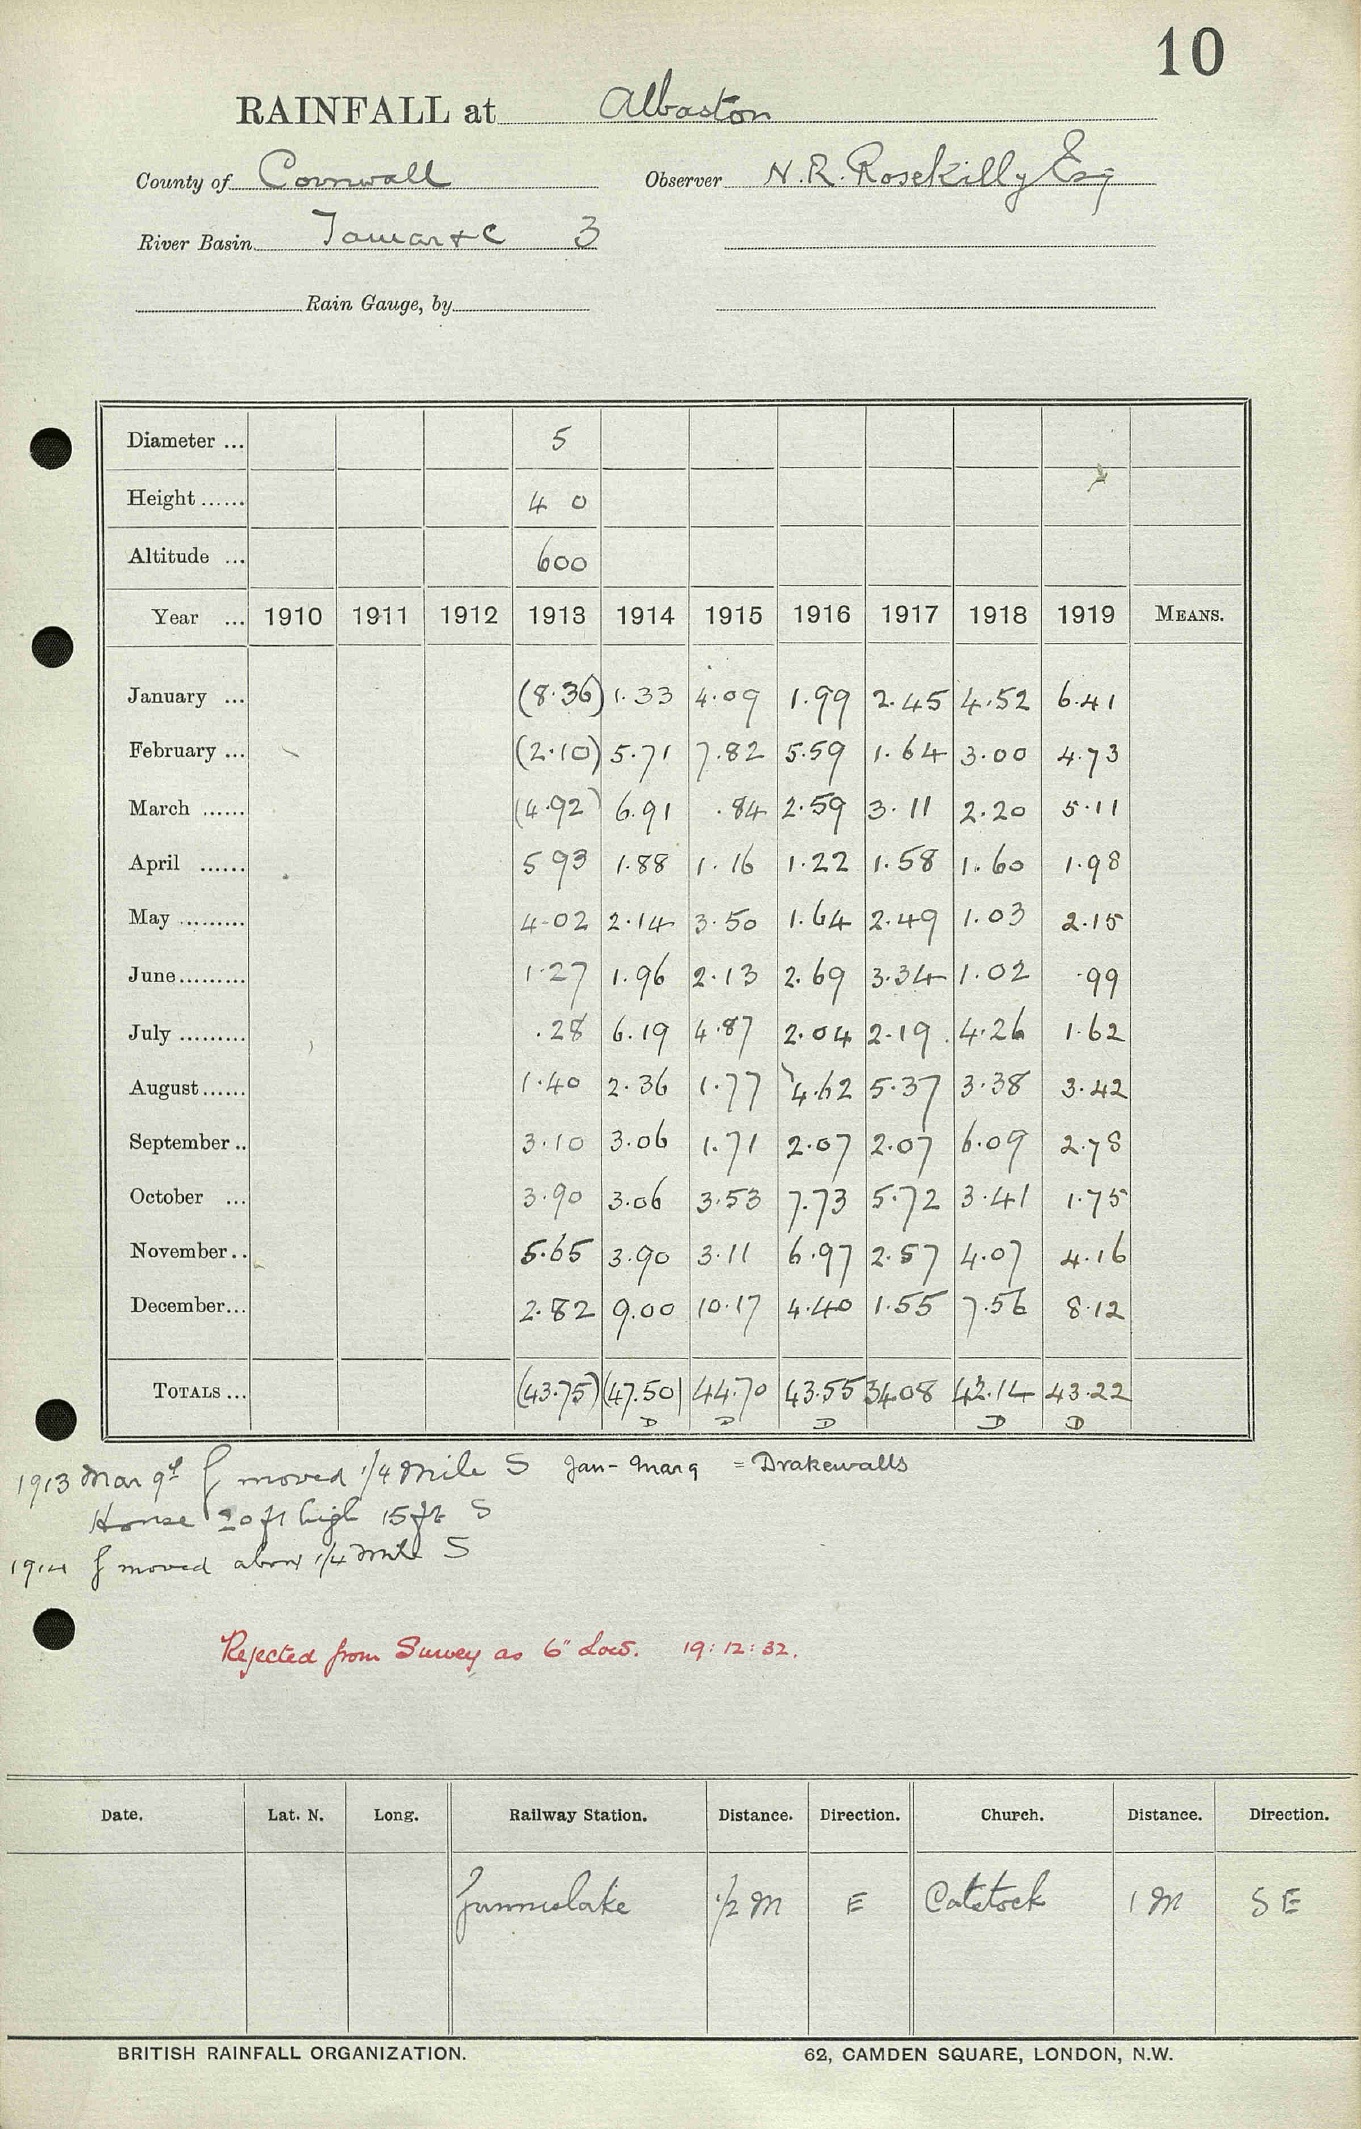 10
RAINFALL at Albaston
County of Cornwall Observer N. R. Rosekilly Esq
River Basin Tamar &c 3
Rain Gauge, by
Diameter ... 5
Height ...... 4 0
Altitude ... 600
Year ... 1910 1911 1912 1913 1914 1915 1916 1917 1918 1919 MEANS.
January ... (8.36) 1.33 4.09 1.99 2.45 4.52 6.41
February ... (2.10) 5.71 7.82 5.59 1.64 3.00 4.73
March ...... (4.92) 6.91 .84 2.59 3.11 2.20 5.11
April ...... 5 93 1.88 1.16 1.22 1.58 1.60 1.98
May ......... 4.02 2.14 3.50 1.64 2.49 1.03 2.15
June ......... 1.27 1.96 2.13 2.69 3.34 1.02 .99
July ......... .28 6.19 4.87 2.04 2.19 4.26 1.62
August ...... 1.40 2.36 1.77 4.62 5.37 3.38 3.42
September .. 3.10 3.06 1.71 2.07 2.07 6.09 2.78
October ... 3.90 3.06 3.53 7.73 5.72 3.41 1.75
November .. 5.65 3.90 3.11 6.97 2.57 4.07 4.16
December ... 2.82 9.00 10.17 4.40 1.55 7.56 8.12
TOTALS ... (43.75) (47.50) 44.70 43.55 34.08 42.14 43.22
D D D D D
1913 Mar 9th g moved 1/4 Mile S Jan - Mar 9 = Drakewalls
House 20 ft high 15 ft S
1914 g moved about 1/4 Mile S
Rejected from Survey as 6" low. 19:12:32.
Date. Lat. N. Long. Railway Station. Distance. Direction. Church. Distance. Direction.
Gunnislake 1/2 M E Calstock 1 M S E
BRITISH RAINFALL ORGANIZATION. 62, CAMDEN SQUARE, LONDON, N.W.